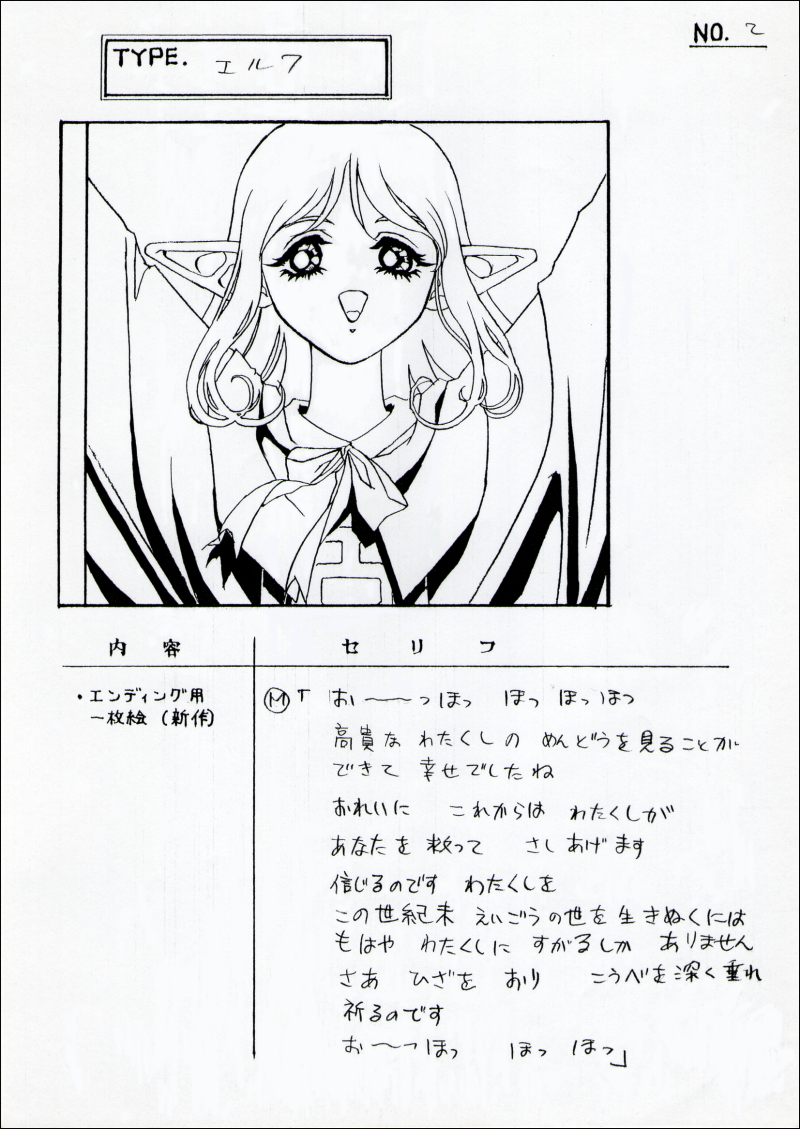 NO. 2
TYPE. エルフ
内容 セリフ
・エンディング用
一枚絵（新作）
Ⓜ「おぃ〜〜っほっ ほっ ほっほっ
高貴な わたくしの めんどうを見ることが
できて 幸せでしたね
おれいに これからは わたくしが
あなたを 救って さしあげます
信じるのです わたくしを
この世紀末 えいごうの世を生きぬくには
もはや わたくしに すがるしか ありません
さあ ひざを おり こうべを深く垂れ
祈るのです
お〜っほっ ほっ ほっ」